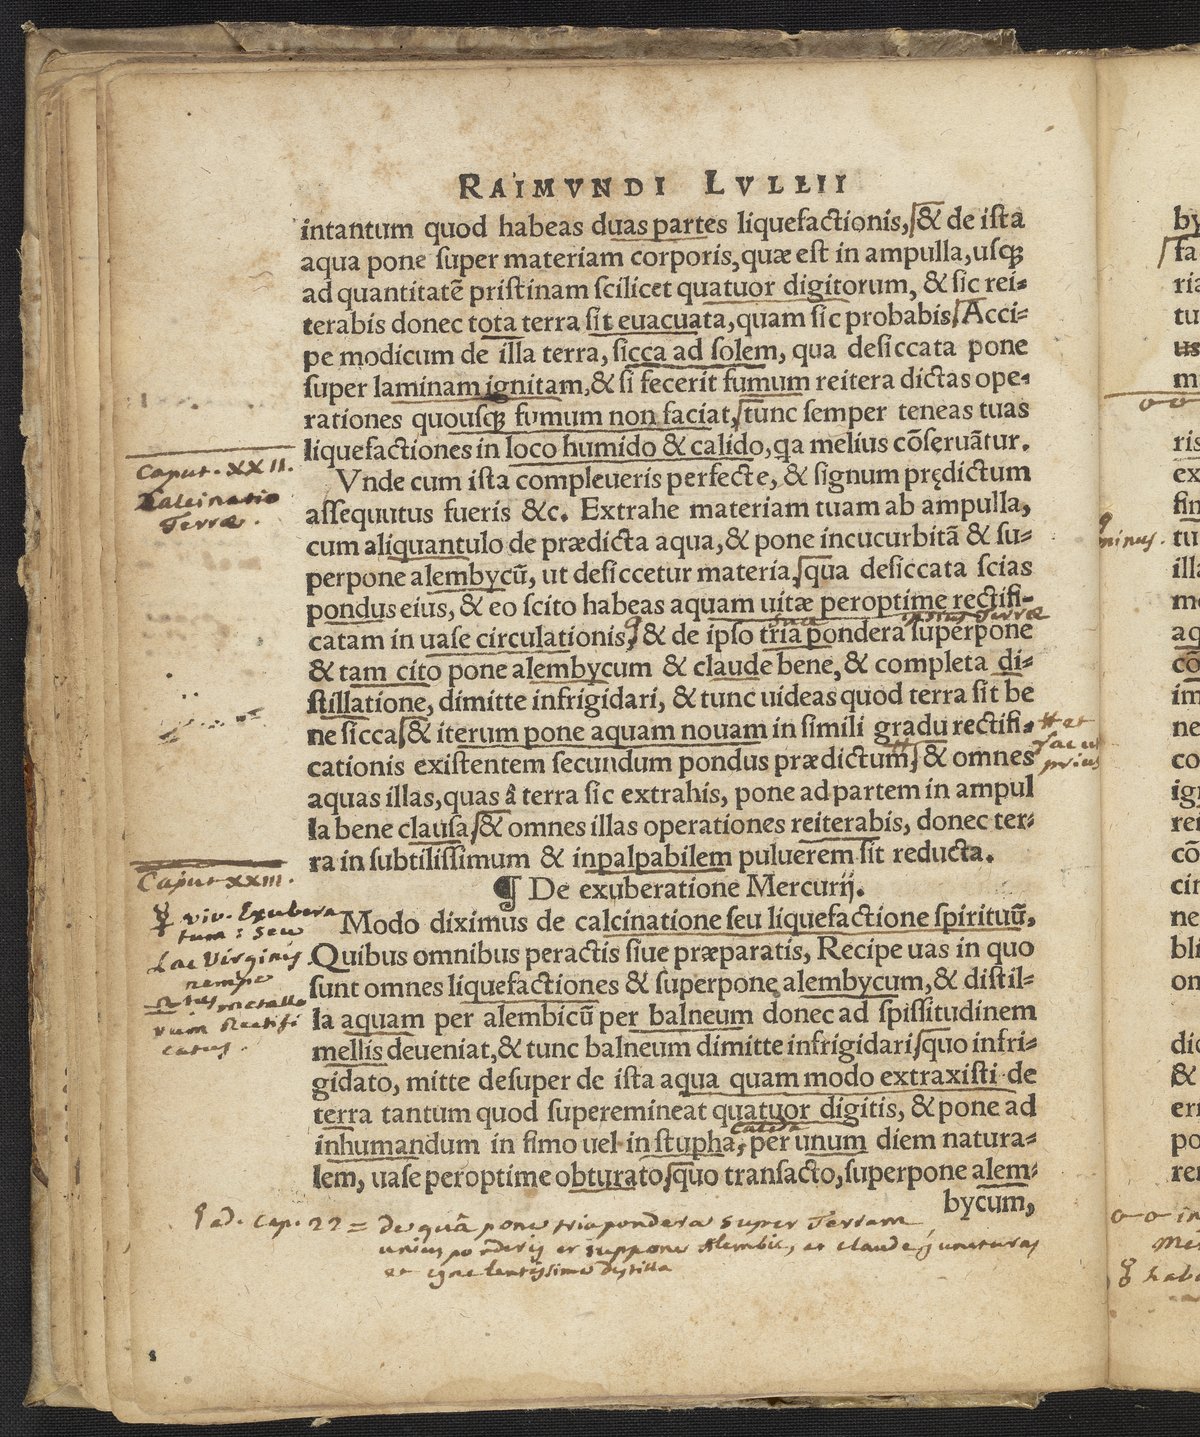 RAIMVNDI LVLLII
intantum quod habeas duas partes liquefactionis, & de ista
aqua pone super materiam corporis, quæ est in ampulla, usq;
ad quantitatẽ pristinam scilicet quatuor digitorum, & sic rei⸗
terabis donec tota terra sit euacuata, quam sic probabis. Acci⸗
pe modicum de illa terra, sicca ad solem, qua desiccata pone
super laminam ignitam, & si fecerit fumum reitera dictas ope⸗
rationes quousq; fumum non faciat, tunc semper teneas tuas
liquefactiones in loco humido & calido, qa melius cõseruãtur.
Caput. XXII.
Calcinatio
Terræ.
Vnde cum ista compleueris perfecte, & signum prędictum
assequutus fueris &c. Extrahe materiam tuam ab ampulla,
cum aliquantulo de prædicta aqua, & pone incucurbitã & su⸗
perpone alembycũ, ut desiccetur materia, qua desiccata scias
pondus eius, & eo scito habeas aquam uitæ peroptime rectifi⸗
ipsius Terræ
catam in uase circulationis, & de ipso tria pondera superpone
& tam cito pone alembycum & claude bene, & completa di⸗
stillatione, dimitte infrigidari, & tunc uideas quod terra sit be
ne sicca, & iterum pone aquam nouam in simili gradu rectifi⸗
# et
fac ut
prius
cationis existentem secundum pondus prædictum, & omnes
aquas illas, quas â terra sic extrahis, pone ad partem in ampul
la bene clausa, & omnes illas operationes reiterabis, donec ter⸗
ra in subtilissimum & inpalpabilem puluerem sit reducta.
Caput XXIII.
¶ De exuberatione Mercurij.
☿ viv. Exubera
tum: seu
Lac Virginis
nempe
metallo
rum Rectifi
catus.
Modo diximus de calcinatione seu liquefactione spirituũ,
Quibus omnibus peractis siue præparatis, Recipe uas in quo
sunt omnes liquefactiones & superpone alembycum, & distil⸗
la aquam per alembicũ per balneum donec ad spissitudinem
mellis deueniat, & tunc balneum dimitte infrigidari, quo infri⸗
gidato, mitte desuper de ista aqua quam modo extraxisti de
terra tantum quod superemineat quatuor digitis, & pone ad
calida
inhumandum in fimo uel in stupha, per unum diem natura⸗
lem, uase peroptime obturato, quo transacto, superpone alem⸗
bycum,
ad. Cap. 22 = de quâ pone tria pondera super Terram
unius ponderis et suppone Alembic, et claude juncturas
et igne lentissimo Distilla